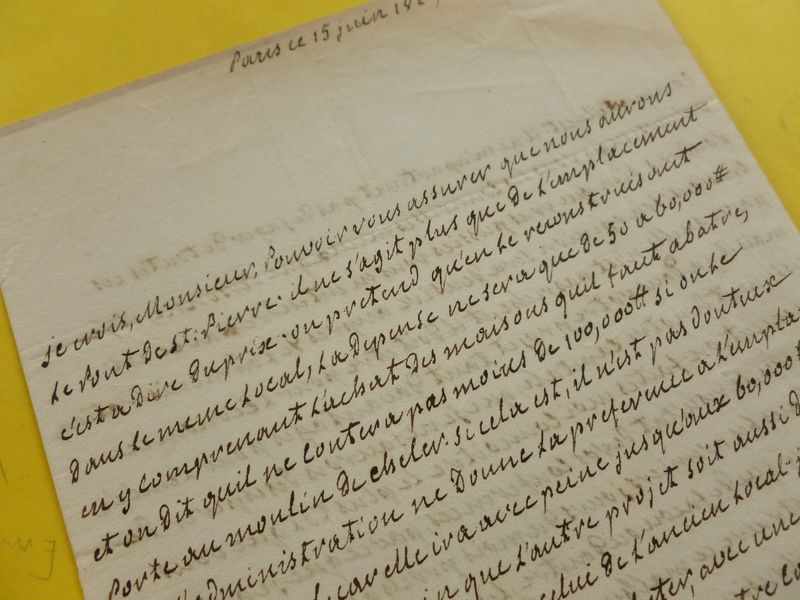 Paris ce 15 juin 182
je crois, Monsieur, Pouvoir vous assurer que nous aurons
Le Pont de st. Pierre. il ne s'agit plus que de L'emplacement
c'est a dire du prix. on pretend qu'en Le reconstruisant
Dans Le meme Local, La depense ne sera que de 50 a 60,000tt
en y comprenant L'achat des maisons quil faut abatre,
et on Dit quil ne Coutera pas moins de 100,000tt si on Le
Porte au moulin de cheler. si cela est, il n'est pas douteux
L'administration ne Donne La preference a L'empla
car elle ira avec peine jusqu'aux 60,000tt
que L'autre projet soit aussi
celui de L'ancien Local.
avec une